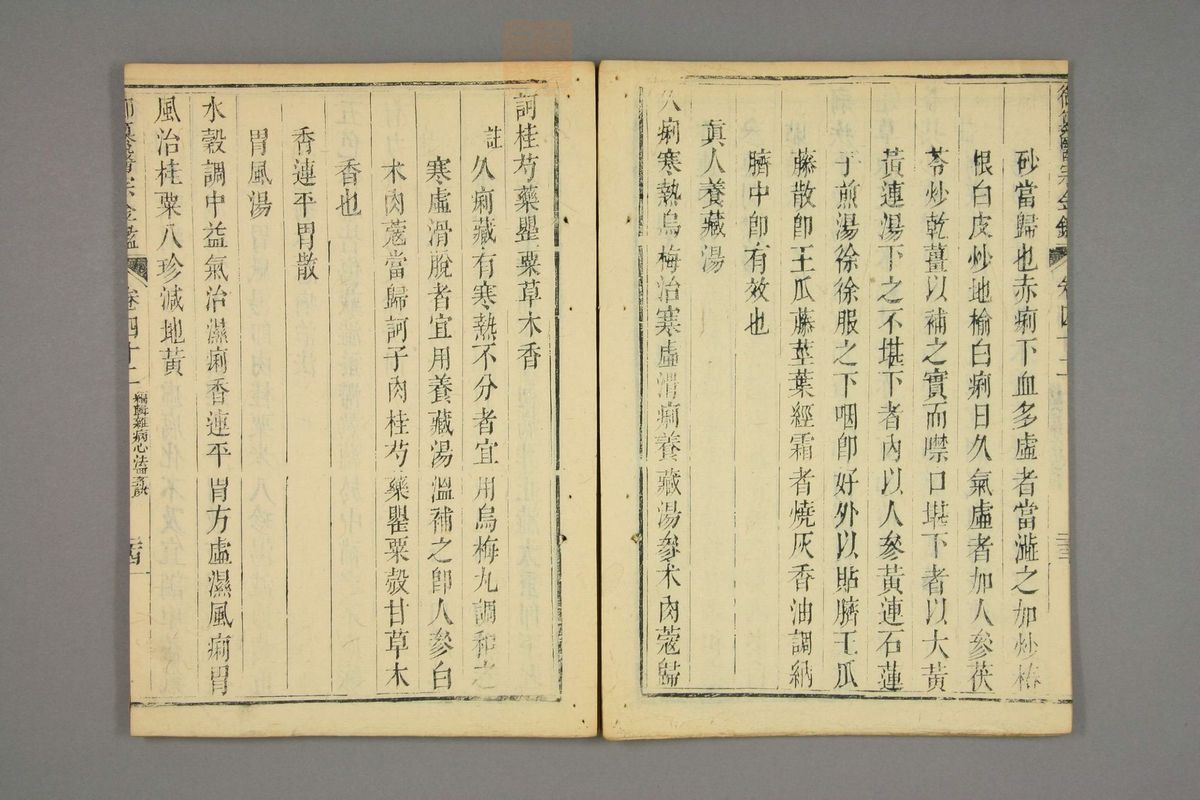 御纂醫宗金鑑 卷四十二
砂當歸也赤痢下血多虛者當澁之加炒椿
根白皮炒地榆白痢日久氣虛者加人參茯
苓炒乾薑以補之實而噤口堪下者以大黃
黃連湯下之不堪下者內以人參黃連石蓮
子煎湯徐徐服之下咽卽好外以貼臍王瓜
藤散卽王瓜藤莖葉經霜者燒灰香油調納
臍中卽有效也
眞人養藏湯
久痢寒熱烏梅治寒虛滑痢養藏湯參术肉蔻歸
訶桂芍藥罌粟草木香
註 久痢藏有寒熱不分者宜用烏梅丸調和之
寒虛滑脫者宜用養藏湯溫補之卽人參白
术肉蔻當歸訶子肉桂芍藥罌粟殼甘草木
香也
香連平胃散
胃風湯
水穀調中益氣治濕痢香連平胃方虛濕風痢胃
風治桂粟八珍減地黃
御纂醫宗金鑑 卷四十二 編輯雜病心法要訣